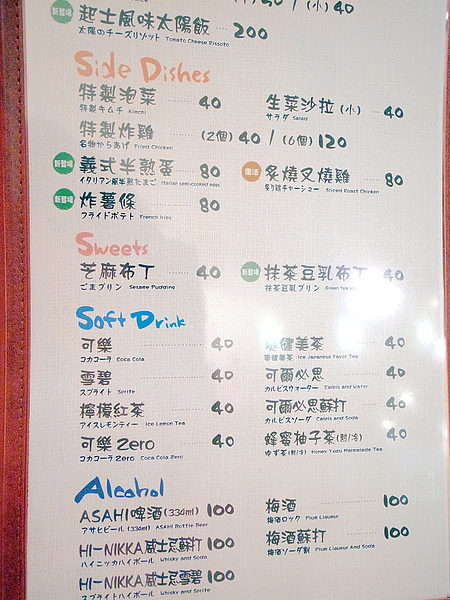 (小) 40
新登場 起士風味太陽飯 200
太陽のチーズリゾット Tomato Cheese Rissoto
Side Dishes
特製泡菜 40
特製キムチ Kimchi
生菜沙拉 (小) 40
サラダ Salad
特製炸雞 (2個) 40 / (6個) 120
名物からあげ Fried Chicken
新登場 義式半熟蛋 80
イタリアン風半熟たまご Italian semi-cooked eggs
復活 炙燒叉燒雞 80
炙り鶏チャーシュー Sliced Roast Chicken
新登場 炸薯條 80
フライドポテト French fries
Sweets
芝麻布丁 40
ごまプリン Sesame Pudding
新登場 抹茶豆乳布丁 40
抹茶豆乳プリン Green tea
Soft Drink
可樂 40
コカコーラ Coca Cola
健美茶 40
Ice Japanese Favor Tea
雪碧 40
スプライト Sprite
可爾必思 40
カルピスウォーター Calpis and Water
檸檬紅茶 40
アイスレモンティー Ice Lemon Tea
可爾必思蘇打 40
カルピスソーダ Calpis and Soda
可樂 Zero 40
コカコーラ Zero Coca Cola Zero
蜂蜜柚子茶(熱/冷) 40
ゆず茶(熱/冷) Honey Yuzu Marmalade Tea
Alcohol
ASAHI啤酒(334ml) 100
アサヒビール (334ml) ASAHI Bottle Beer
梅酒 100
梅酒ロック Plum Liqueur
HI-NIKKA威士忌蘇打 100
ハイニッカハイボール Whisky and Soda
梅酒蘇打 100
梅酒ソーダ割 Plum Liqueur And Soda
HI-NIKKA威士忌雪碧 100
スプライトハイボール Whisky and Sprite